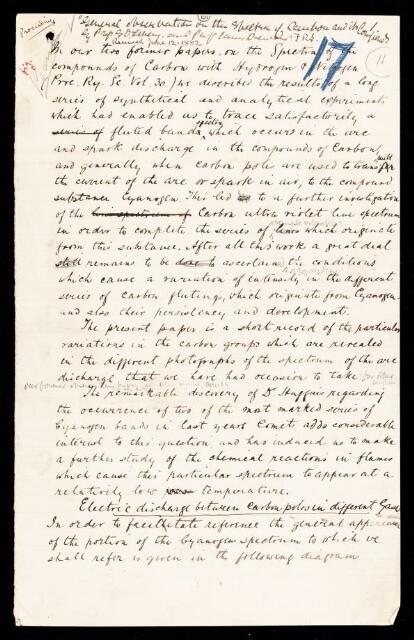 Proceedings
"General observations on the Spectra of Carbon and its Compounds"
by Prof and Prof Dewar FRS.
Received June 12. 1882.
17
11
In our two former papers on the Spectra of the
compounds of Carbon with Hydrogen & Nitrogen
Proc. Ry. Sc Vol. 30) we described the results of a long
series of synthetical and analytical experiments
which had enabled us to trace satisfactorily a
series of fluted bands which occurs in the arc
and spark discharge in the compounds of Carbon,
and generally when carbon poles are used to
the current of the arc or spark in air, to the compound
substance Cyanogen. This led to a further investigation
of the Carbon ultra violet line spectrum
in order to complete the series of lines which originate
from this substance. After all this work a great deal
still remains to be done to ascertain the conditions
which cause a variation of intensity in the different
series of Carbon flutings, which originate from Cyanogen
and also their persistency and development.
The present paper is a short record of the particular
variations in the carbon groups which are revealed
in the different photographs of the spectrum of the arc
discharge that we have had occasion to take
The remarkable discovery of Dr Huggins regarding
the occurrence of two of the most marked series of
Cyanogen bands in last years Comet adds considerable
interest to this question and has induced us to make
a further study of the chemical reactions in flames
which cause this particular spectrum to appear at a
relatively low temperature.
Electric discharge between Carbon poles in different Gases
In order to facilitate reference the general appearance
of the portion of the Cyanogen spectrum to which we
shall refer is given in the following diagram